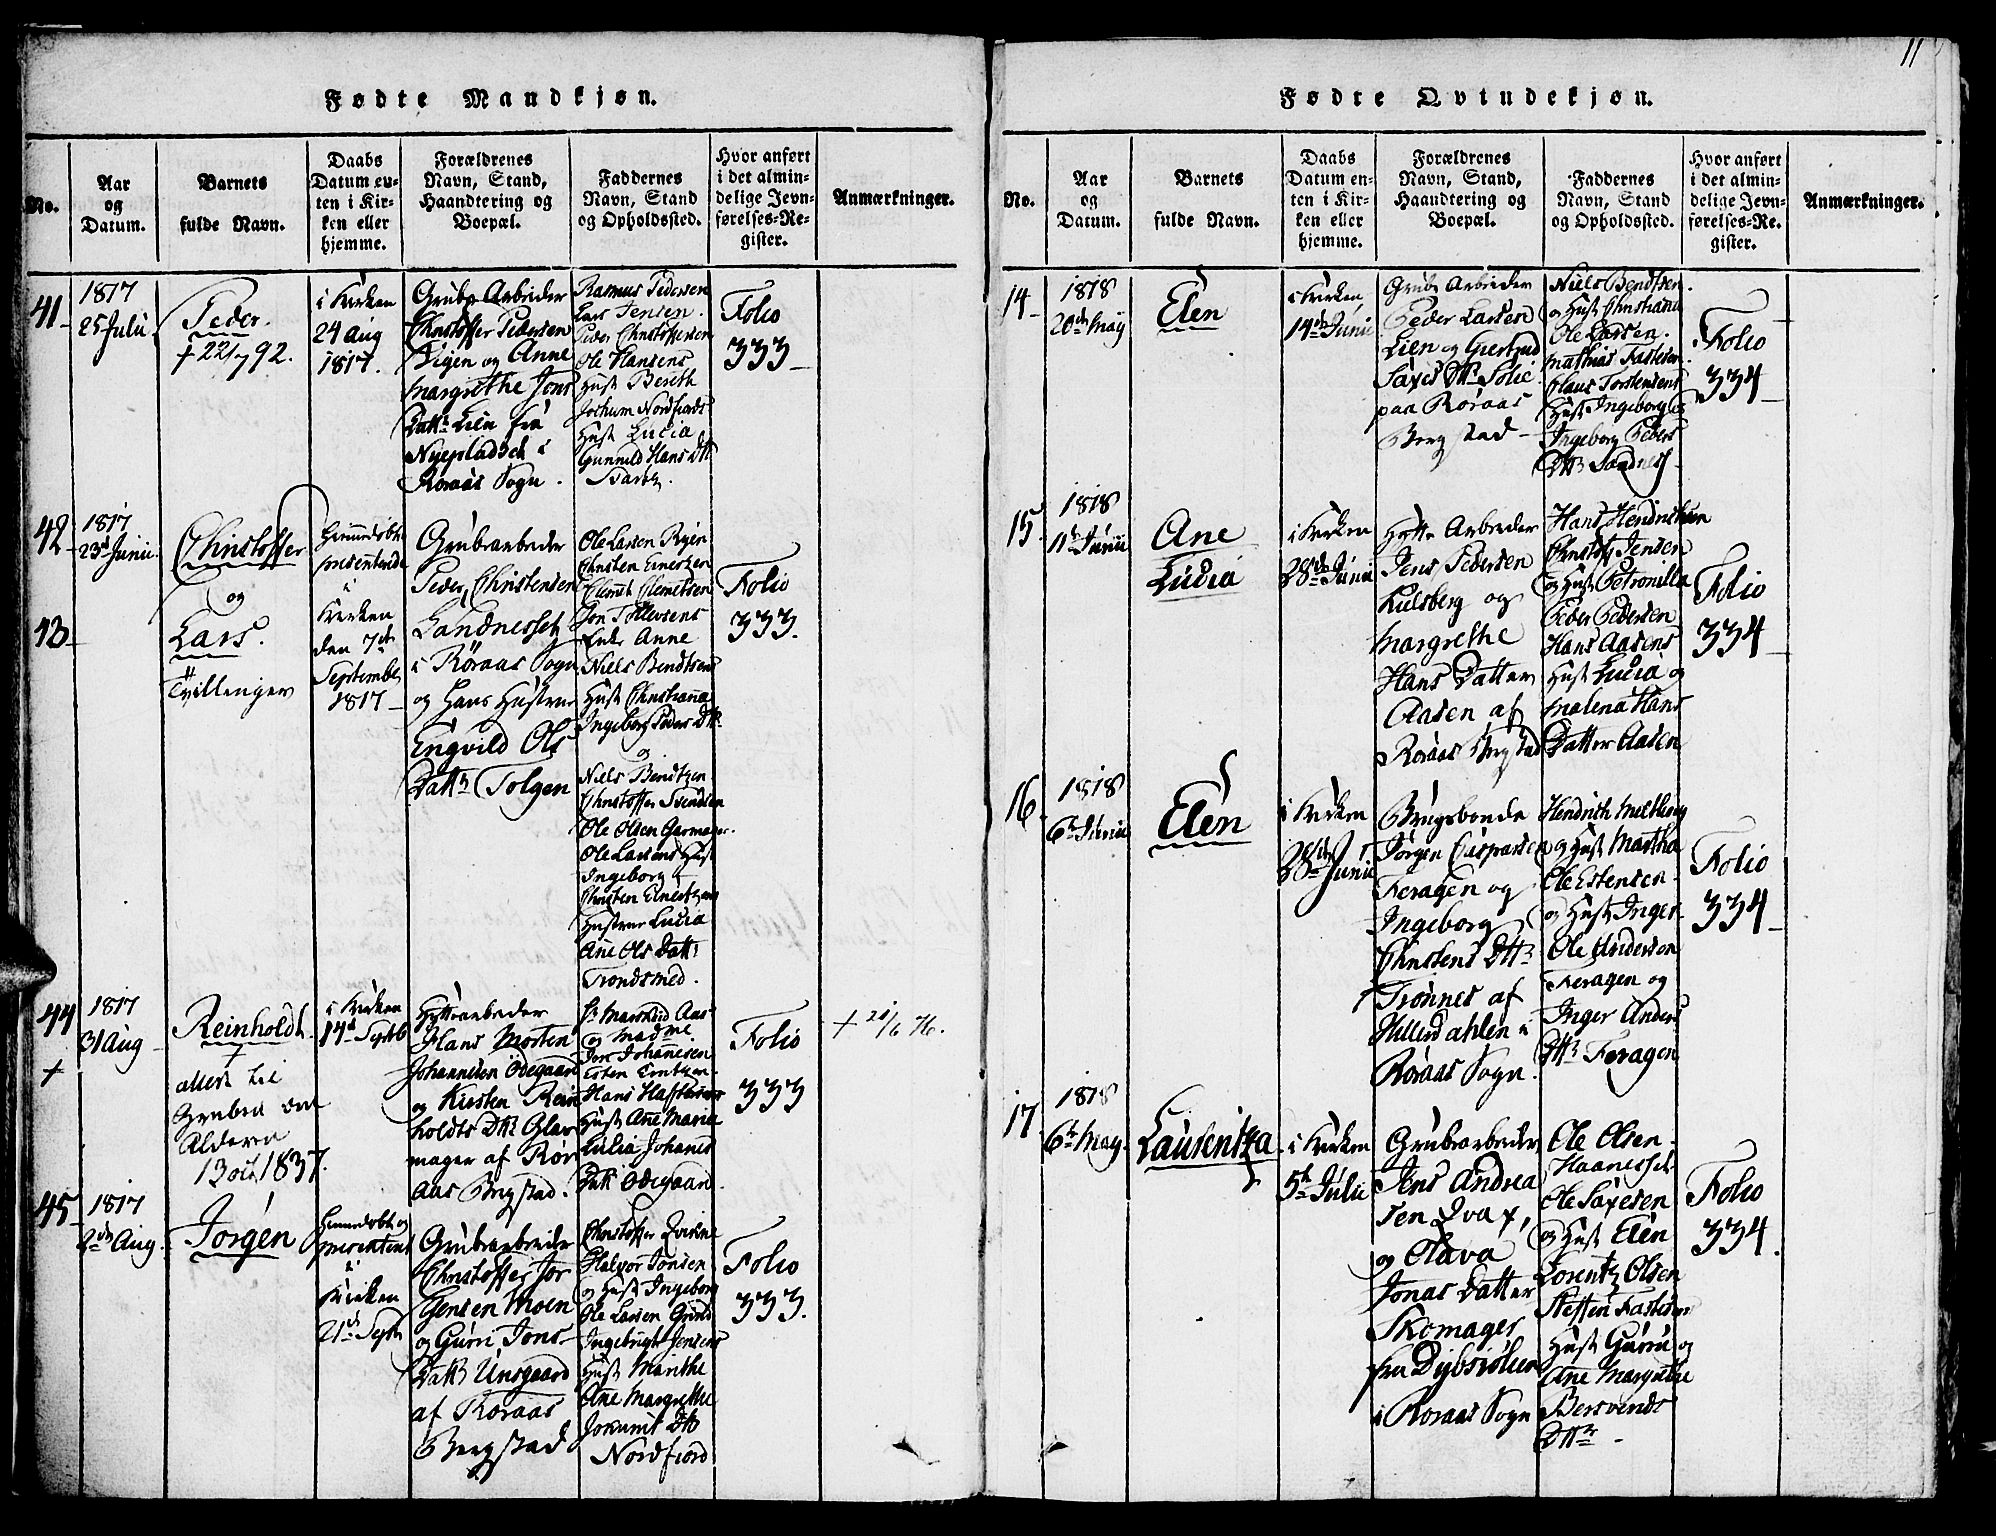 11
Fødte Mandkjøn.
No.
Aar
og
Datum.
Barnets
fulde Navn.
Daabs
Datum en-
ten i Kir-
ken eller
hjemme.
Forældrenes
Navn, Stand,
Haandtering og
Boepæl.
Faddernes
Navn, Stand
og Opholdssted.
Hvor anført
i det almin-
delige Jevn-
førelses-Re-
gister.
Anmærkninger.
41
1817
25 Julii
Peder.
+ 22/7 92.
i Kirken
24 aug
1817.
Grube Arbeider
Christoffer Pedersen
og Anne
Margrethe Jons
Datt: Lien fra
Nyepladsen i
Røraas Sogn.
Rasmus Pedersen
Lars Jensen.
Peder Christoffersen
Ole Hansens
Hust Bereth
Jochum Nordfiords
Hust Lucia
Gunnild Hans Dtt
Folio
333
42
1817
23d Junii.
Christoffer
og
43
Lars.
Tvillinger
Hiemmedøbte
presenterede
i
Kirken
den 7de
September
1817
Grubearbeider
Peder Christensen
Sandnesset
i Røraas Sogn
og Hans Hustrue
Engvild Ols
Datt: Tolgen
Ole Larsen Ryen
Christen Einertzen
Clemet Clemetsen
Jon Tollevsens
Enke Anne
Niels Bendtsens
Hust Christianna
Ingeborg Peders Dtt.
og
Niels Bendtzen
Christoffer Svendsen
Ole Olsen Garmager.
Ole Larsens Hust
Ingeborg
Christen Einertzens
Hustrue Lucia
Ane Ols Datt:
Trondsmed.
Folio
333.
44
+
1817
31 Aug
Reinholdt
+
attest til
Gruben om
Alderen
13 oct 1837.
i Kirken
14d Septb
Hytte arbeider
Hans Morten
Johannesen Ødegaard
og Kirsten Rein
holdts Dtt: Glas
mager af Rør
aas Bergstad.
Aas
og Madme
Jon Johannesen
Esten Erntzen
Hans
Hust Ane Maria
Lucia Johanis
Datt Ødegaard.
Folio
333
+ 21/6 76.
45
1817
2de Aug.
Jørgen
Hiemmedøbt og
presentert
i
Kirken
21d Septr
Grubearbeider
Christoffer Jør
gensen Moen
og Gurri Jons
Datt: Unsgaard
af Røraas
Bergstad
Christoffer Qvikne
Halvor Jonsen
og Hust Ingeborg
Ole Larsen Grind
Ingebrigt Jensens
Hust Marithe
Ane Margrethe
Jokumit Dtt
Nordfiord
Folio
333.
Fødte Qvindekjøn.
No.
Aar
og
Datum.
Barnets
fulde Navn.
Daabs
Datum en-
ten i Kir-
ken eller
hjemme.
Forældrenes
Navn, Stand,
Haandtering og
Boepæl.
Faddernes
Navn, Stand
og Opholdssted.
Hvor anført
i det almin-
delige Jevn-
førelses-Re-
gister.
Anmærkninger.
14
1818
20de May
Elen
i Kirken
14de Junii
Grube Arbeider
Peder Larsen
Lien og Giertrud
Saxes Dtt: Solie
paa Røraas
Bergstad
Niels Bendtsen.
og Hust Christiana
Ole Larsen.
Mathias Fastesen
Claus Torstensens
Hust Ingeborg og
Ingeborg Peders
Dtt: Sandnes
Folio
334
15.
1818
11te Junii
Ane
Lucia
i Kirken
28de Junii
Hytte Arbeider
Jens Pedersen
Kielsberg og
Margrethe
Hans Datter
Aasen af
Røraas Bergstad
Hans Hendrichsen
Christoph Jensen
og Hust Petronilla
Peder Pedersen
Hans Aasens
Hust Lucia og
Malena Hans
Datter Aasen
Folio
334
16.
1818
6te Junii
Elen
i Kirken
28de Junii
Brugsbonde
Jørgen Caspersen
Feragen og
Ingeborg
Christens Dtt:
Trønnes af
Hitterdahlen i
Røraas Sogn.
Hendrich Meltberg
og Hust Martha
Ole Estensen
og Hust Inger
Ole Andersen
Feragen og
Inger Anders
Dtt: Feragen
Folio
334
17.
1818
6te May.
Laurentza
i Kirken
5te Julii
Grubearbeider
Jens Andrea
sen Qvax,
og Olava
Jonas Datter
Skomager
fra Dybsiøllen
i Røraas Sogn
Ole Olsen
Haanesset
Ole Saxesen
og Hust Elen
Lorentz Olsen
Steffen Fastesens
Hust Gurru og
Ane Margrethe
Bersvends
Dtt:
Folio
334.